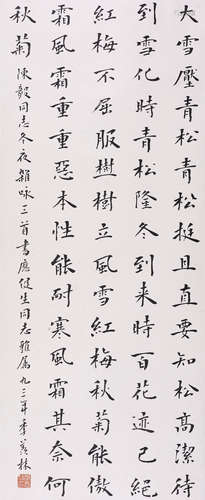 大雪壓青松青松挺且直要知松高潔待
到雪化時青松隆冬到來時百花迹已絕
紅梅不屈服樹樹立風雪紅梅秋菊能傲
霜風霜重重惡本性能耐寒風霜其奈何
秋菊
陳毅同志冬夜雜咏三首書應健生同志雅属九三年季羨林